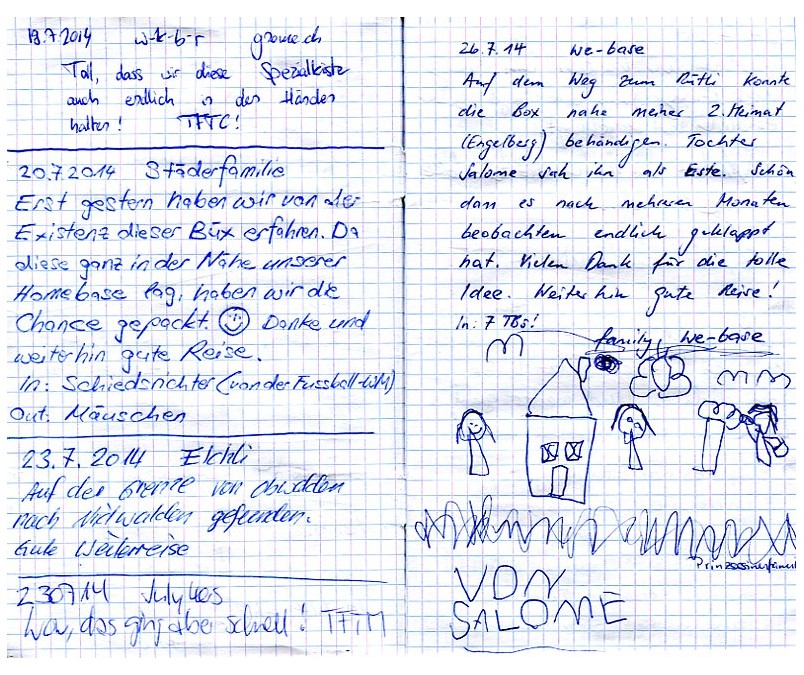 19.7.2014 w-k-b-r gromech
Toll, dass wir diese Spezialkiste
auch endlich in den Händen
halten! TFTC!
20.7.2014 Städerfamilie
Erst gestern haben wir von der
Existenz dieser Büx erfahren. Da
diese ganz in der Nähe unserer
Homebase lag, haben wir die
Chance gepackt. Danke und
weiterhin gute Reise.
In: Schiedsrichter (von der Fussball-WM)
Out: Mäuschen
23.7.2014 Elchli
Auf der Grenze von Obwalden
nach Nidwalden gefunden.
Gute Weiterreise
230714
Wow, das ging aber schnell! TFTM
26.7.14 we-base
Auf dem Weg zum Rütli konnte
die Box nahe meiner 2. Heimat
(Engelberg) behändigen. Tochter
Salome sah ihn als Erste. Schön
dass es nach mehreren Monaten
beobachten endlich geklappt
hat. Vielen Dank für die tolle
Idee. Weiterhin gute Reise!
In: 7 TBs!
family, we-base
VON
SALOME